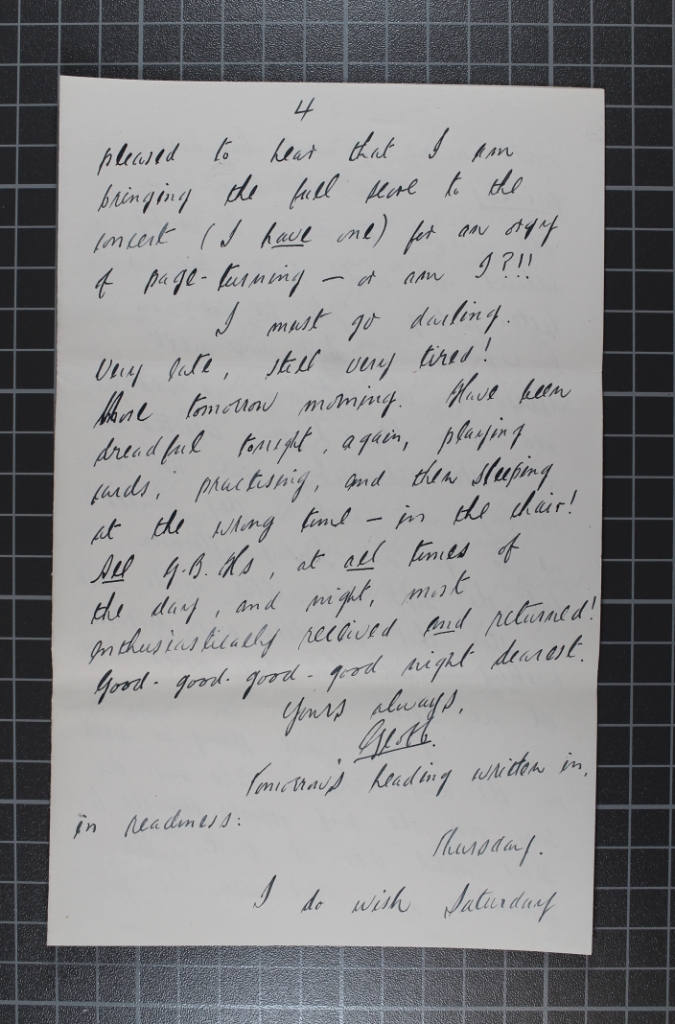 4
pleased to hear that I am
bringing the full score to the
concert (I have one) for an orgy
of page-turning — or am I?!!
I must go darling.
Very late, still very tired!
More tomorrow morning. Have been
dreadful tonight, again, playing
cards, practising, and then sleeping
at the wrong time — in the chair!
All G.B. Hs, at all times of
the day, and night, most
enthusiastically received and returned!
Good- good- good- good night dearest.
Yours always,
Geoff.
Tomorrow's heading written in,
in readiness:
Thursday.
I do wish Saturday